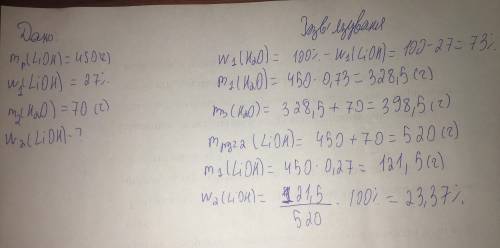 Дано:
mp(LiOH)=450(г)
w1(LiOH)=27%
m2(H2O)=70(г)
w2(LiOH)-?
Розв'язування
w1(H2O)=100%-w1(LiOH)=100-27=73%
m1(H2O)=450·0,73=328,5(г)
m3(H2O)=328,5+70=398,5(г)
mрзг2(LiOH)=450+70=520(г)
m1(LiOH)=450·0,27=121,5(г)
w2(LiOH)=121,5/520·100%=23,37%